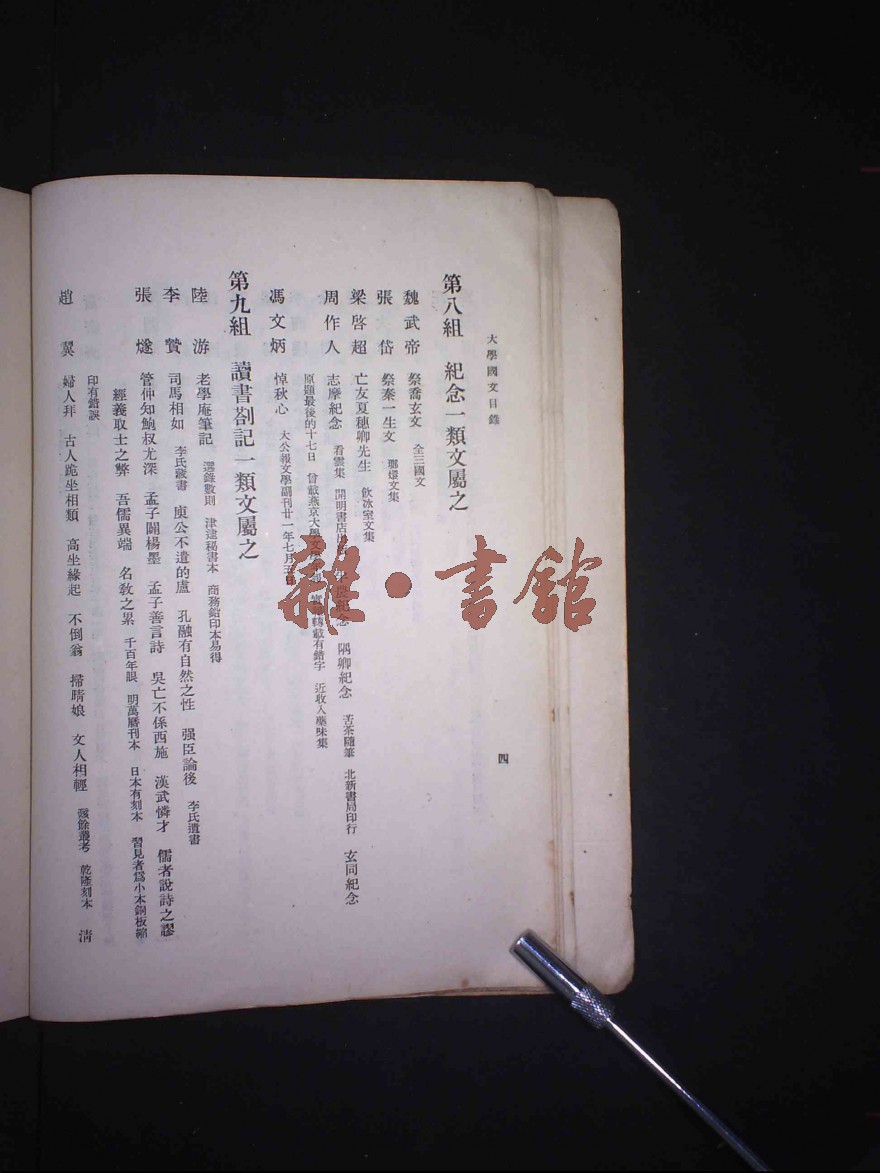 大學國文目錄
第八組　紀念一類文屬之
魏武帝　祭喬玄文　全三國文
張　岱　祭秦一生文　瑯嬛文集
梁啓超　亡友夏穗卿先生　飲冰室文集
周作人　志摩紀念　看雲集　開明書店　半農紀念　隅卿紀念　苦茶隨筆　北新書局印行　玄同紀念
原題最後的十七日　曾載燕京大學文學　轉載有錯字　近收入藥味集
馮文炳　悼秋心　大公報文學副刊廿一年七月五日
第九組　讀書劄記一類文屬之
陸　游　老學庵筆記　選錄數則　津逮秘書本　商務鉛印本易得
李　贄　司馬相如　李氏藏書　庾公不遣的盧　孔融有自然之性　强臣論後　李氏遺書
張　燧　管仲知鮑叔尤深　孟子闢楊墨　孟子善言詩　吳亡不係西施　漢武憐才　儒者說詩之謬
經義取士之弊　吾儒異端　名敎之累　千百年眼　明萬曆刊本　日本有刻本　習見者爲小本銅板縮
印有錯誤
趙　翼　婦人拜　古人跪坐相類　高坐緣起　不倒翁　掃晴娘　文人相輕　陔餘叢考　乾隆刻本　淸
四
雜·書館